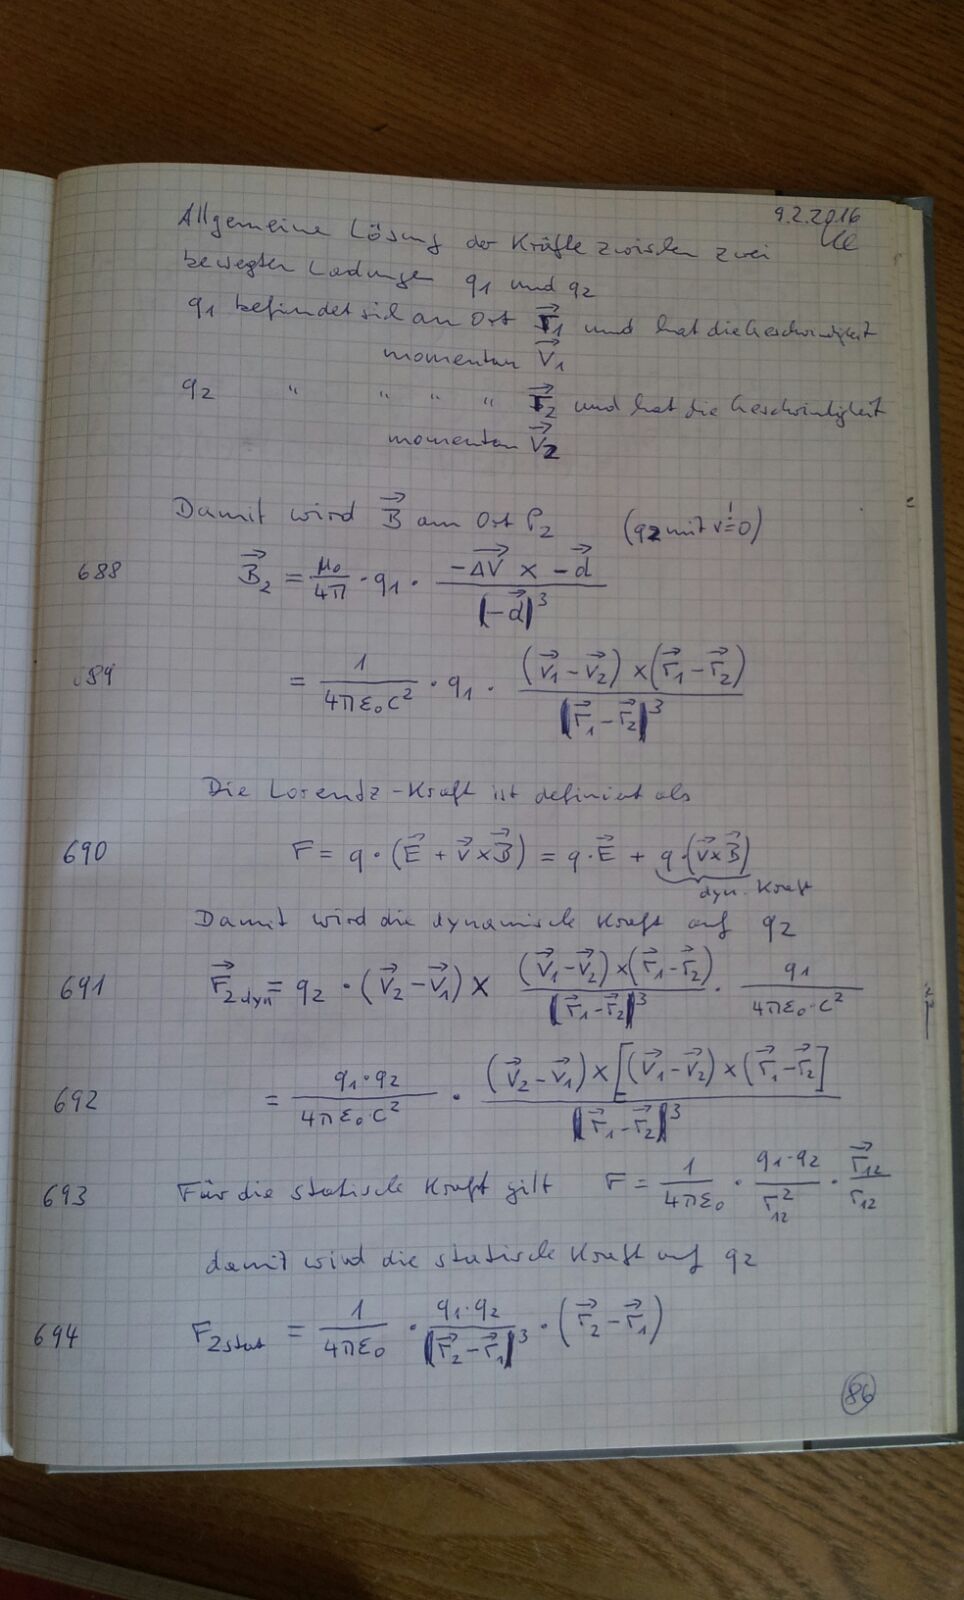 9.2.2016
Allgemeine Lösung der Kräfte zwischen zwei
bewegten Ladungen q1 und q2
q1 befindet sich am Ort r⃗1 und hat die Geschwindigkeit
momentan V⃗1
q2 " " " " r⃗2 und hat die Geschwindigkeit
momentan V⃗2
Damit wird B⃗ am Ort P2 (q2 mit v=!0)
688 B⃗2 = μ0/4π · q1 · (−ΔV⃗ × −d⃗)/|−d⃗|³
689 = 1/(4πε0c²) · q1 · (v⃗1−v⃗2)×(r⃗1−r⃗2)/|r⃗1−r⃗2|³
Die Lorentz-Kraft ist definiert als
690 F = q·(E⃗ + v⃗×B⃗) = q·E⃗ + q·(v⃗×B⃗)
dyn. Kraft
Damit wird die dynamische Kraft auf q2
691 F⃗2dyn = q2 · (v⃗2−v⃗1) × (v⃗1−v⃗2)×(r⃗1−r⃗2)/|r⃗1−r⃗2|³ · q1/(4πε0·c²)
692 = q1·q2/(4πε0·c²) · (v⃗2−v⃗1)×[(v⃗1−v⃗2)×(r⃗1−r⃗2]/|r⃗1−r⃗2|³
693 Für die statische Kraft gilt F = 1/(4πε0) · q1·q2/r12² · r⃗12/r12
damit wird die statische Kraft auf q2
694 F2stat = 1/(4πε0) · q1·q2/|r⃗2−r⃗1|³ · (r⃗2−r⃗1)
86